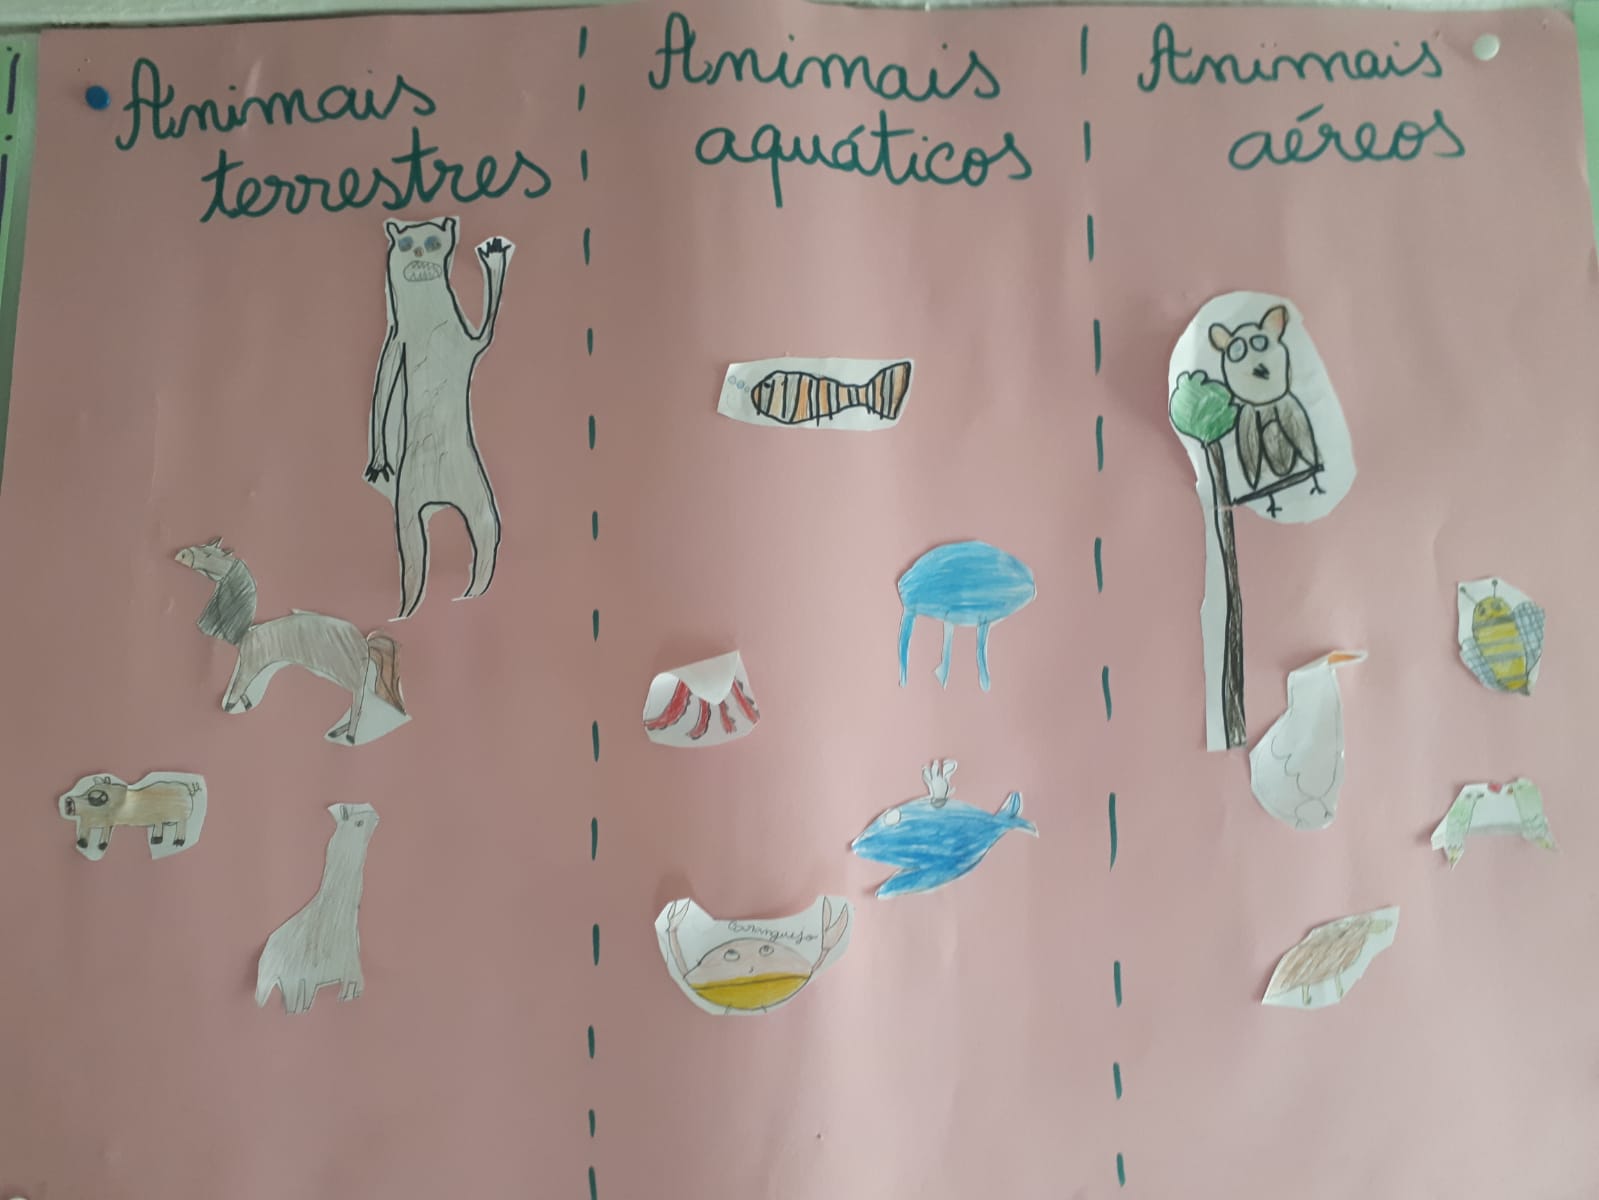 Animais
terrestres
Animais
aquáticos
Animais
aéreos
Caranguejo